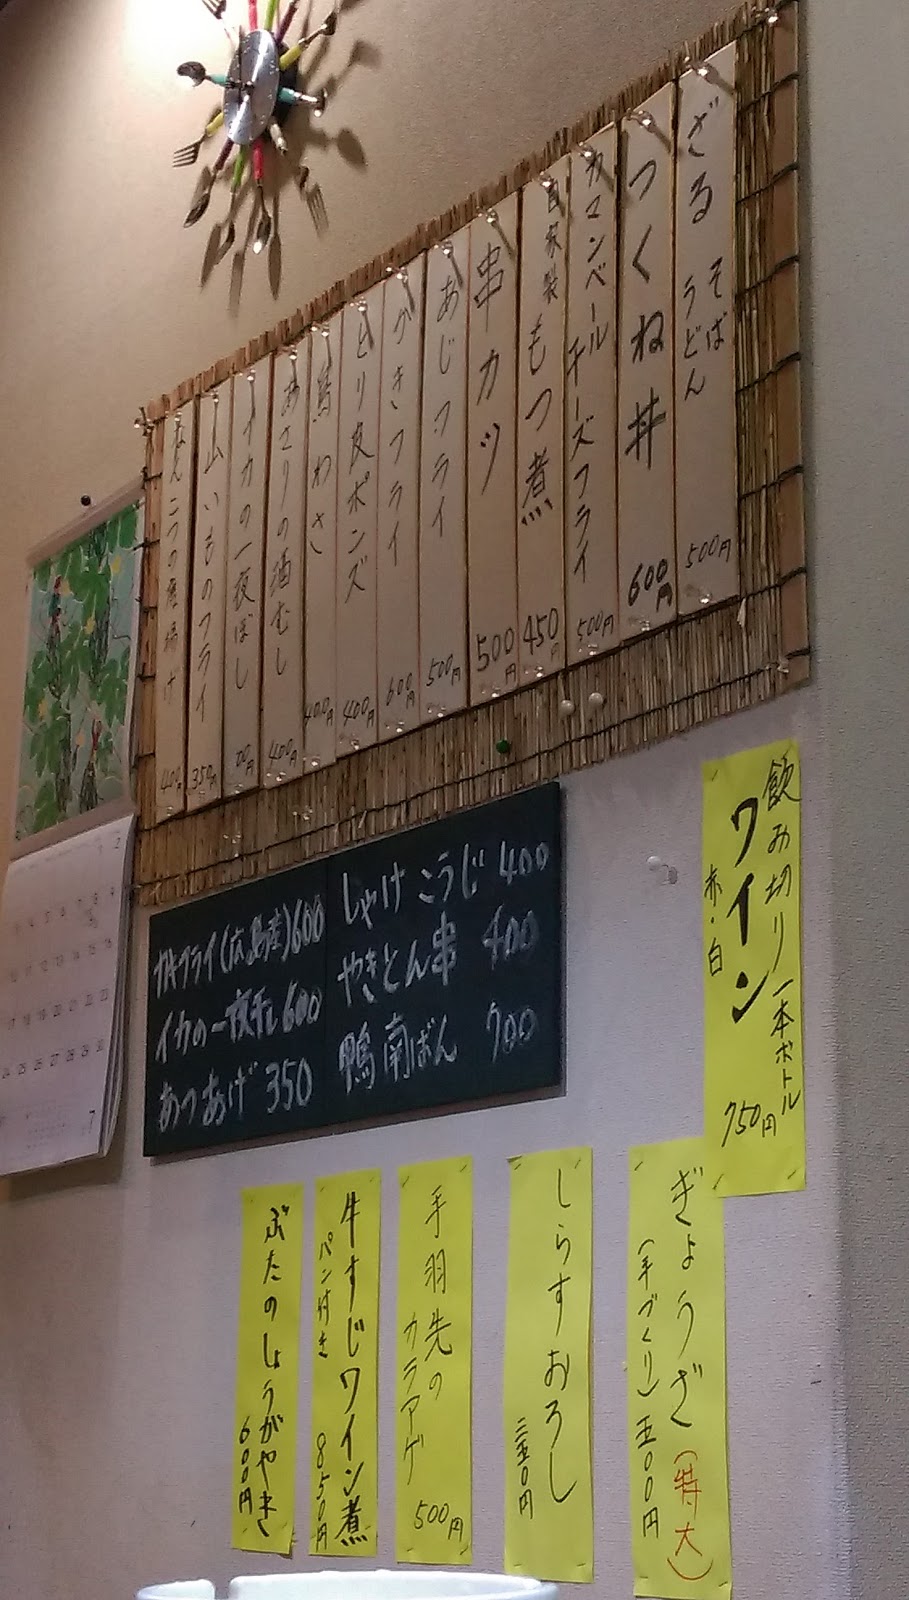 ざる そば うどん 500円
つくね丼 600円
カマンベールチーズフライ 500円
自家製 もつ煮 450円
串カツ 500円
あじフライ 500円
かきフライ 600円
とり皮ポンズ 400円
鳥わさ 400円
あさりの酒むし 400円
イカの一夜ぼし
山いものフライ 350円
なんこつの唐揚げ 400円
しゃけこうじ 400
やきとん串 400
鴨南ばん 700
カキフライ(広島産)600
イカの一夜干し 600
あつあげ 350
飲み切り一本ボトル
ワイン
赤・白
750円
ぎょうざ(特大)
(手づくり)五00円
しらすおろし
三五0円
手羽先の
カラアゲ
500円
牛すじワイン煮
パン付き 850円
ぶたのしょうがやき
600円